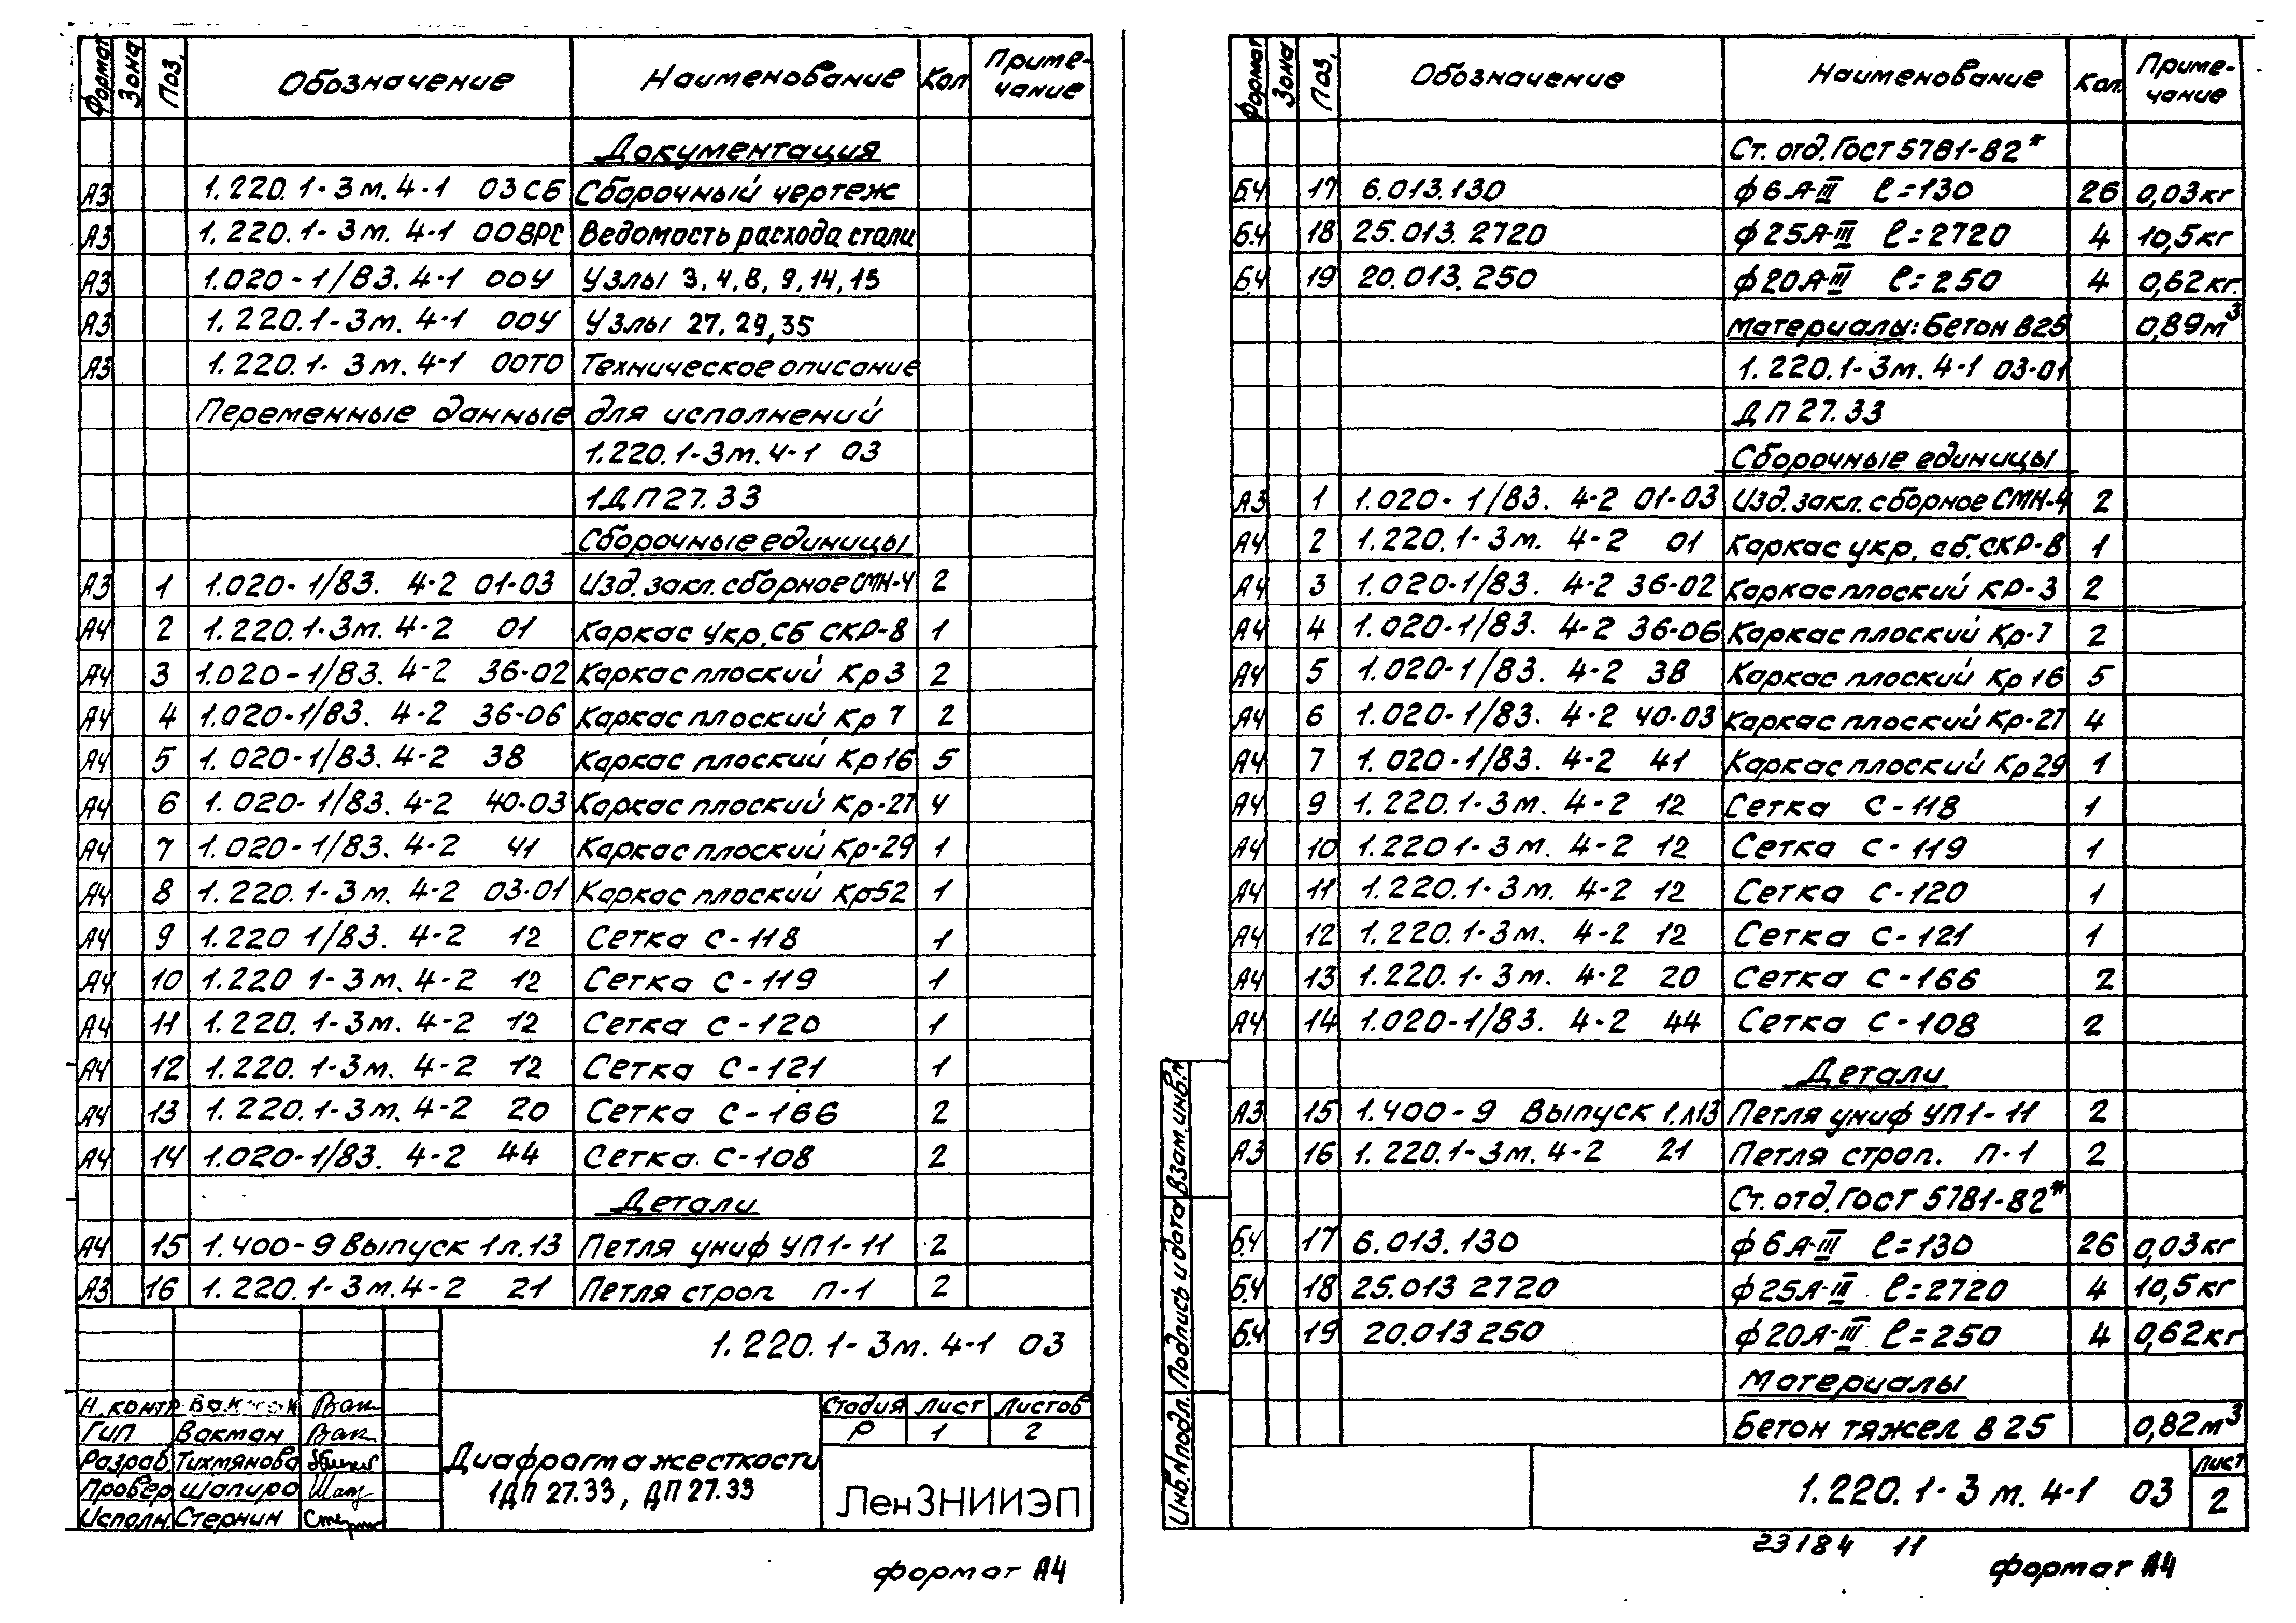 Формат Зона Поз. Обозначение Наименование Кол Приме-чание
Документация
А3 1.220.1-3м.4-1 03СБ Сборочный чертеж
А3 1.220.1-3м.4-1 00ВРС Ведомость расхода стали
А3 1.020-1/83.4-1 00У Узлы 3,4,8,9,14,15
А3 1.220.1-3м.4-1 00У Узлы 27,29,35
А3 1.220.1-3м.4-1 00ТО Техническое описание
Переменные данные для исполнений
1.220.1-3м.4-1 03
1ДП27.33
Сборочные единицы
А3 1 1.020-1/83. 4-2 01-03 Изд. закл. сборное СМН-4 2
А4 2 1.220.1-3м.4-2 01 Каркас укр.сб СКР-8 1
А4 3 1.020-1/83. 4-2 36-02 Каркас плоский Кр3 2
А4 4 1.020-1/83. 4-2 36-06 Каркас плоский Кр 7 2
А4 5 1.020-1/83. 4-2 38 Каркас плоский Кр16 5
А4 6 1.020-1/83. 4-2 40-03 Каркас плоский Кр-27 4
А4 7 1.020-1/83. 4-2 41 Каркас плоский Кр-29 1
А4 8 1.220.1-3м. 4-2 03-01 Каркас плоский Кр52 1
А4 9 1.220 1/83. 4-2 12 Сетка С-118 1
А4 10 1.220 1-3м. 4-2 12 Сетка С-119 1
А4 11 1.220. 1-3м. 4-2 12 Сетка С-120 1
А4 12 1.220. 1-3м. 4-2 12 Сетка С-121 1
А4 13 1.220.1-3м.4-2 20 Сетка С-166 2
А4 14 1.020-1/83. 4-2 44 Сетка С-108 2
Детали
А4 15 1.400-9 Выпуск 1л.13 Петля униф УП1-11 2
А3 16 1.220.1-3м.4-2 21 Петля строп П-1 2
1.220.1-3м.4-1 03
Н.контр Вакман Вак
ГИП Вакман Вак
Разраб. Тихмянова
Провер Шапиро Шап
Исполн. Стернин Стерн
Диафрагма жесткости
1ДП 27.33, ДП 27.33
Стадия Лист Листов
Р 1 2
ЛенЗНИИЭП
формат А4
Формат Зона Поз. Обозначение Наименование Кол. Приме-чание
Ст. отд. Гост 5781-82*
Б.4 17 6.013.130 ф6А-III ℓ=130 26 0,03кг
Б.4 18 25.013.2720 ф25А-III ℓ=2720 4 10,5кг
Б.4 19 20.013.250 ф20А-III ℓ=250 4 0,62кг.
Материалы: Бетон В25 0,89м³
1.220.1-3м.4-1 03-01
ДП27.33
Сборочные единицы
А3 1 1.020-1/83. 4-2 01-03 Изд. закл. сборное СМН-4 2
А4 2 1.220.1-3м. 4-2 01 Каркас укр. сб.СКР-8 1
А4 3 1.020-1/83. 4-2 36-02 Каркас плоский КР-3 2
А4 4 1.020-1/83. 4-2 36-06 Каркас плоский Кр-7 2
А4 5 1.020-1/83. 4-2 38 Каркас плоский Кр 16 5
А4 6 1.020-1/83. 4-2 40-03 Каркас плоский Кр-27 4
А4 7 1.020-1/83. 4-2 41 Каркас плоский Кр29 1
А4 9 1.220.1-3м. 4-2 12 Сетка С-118 1
А4 10 1.220 1-3м. 4-2 12 Сетка С-119 1
А4 11 1.220.1-3м. 4-2 12 Сетка С-120 1
А4 12 1.220.1-3м. 4-2 12 Сетка С-121 1
А4 13 1.220.1-3м. 4-2 20 Сетка С-166 2
А4 14 1.020-1/83. 4-2 44 Сетка С-108 2
Детали
А3 15 1.400-9 Выпуск 1.л13 Петля униф УП1-11 2
А3 16 1.220.1-3м.4-2 21 Петля строп. П-1 2
Ст. отд. ГОСТ 5781-82*
Б.4 17 6.013.130 ф6А-III ℓ=130 26 0,03кг
Б.4 18 25.013 2720 ф25А-III ℓ=2720 4 10,5кг
Б.4 19 20.013 250 ф20А-III ℓ=250 4 0,62кг
Материалы
Бетон тяжел В 25 0,82м³
Инв.Nподл. Подпись и дата Взам.инв.N
1.220.1-3м.4-1 03
Лист
2
23184 11
формат А4